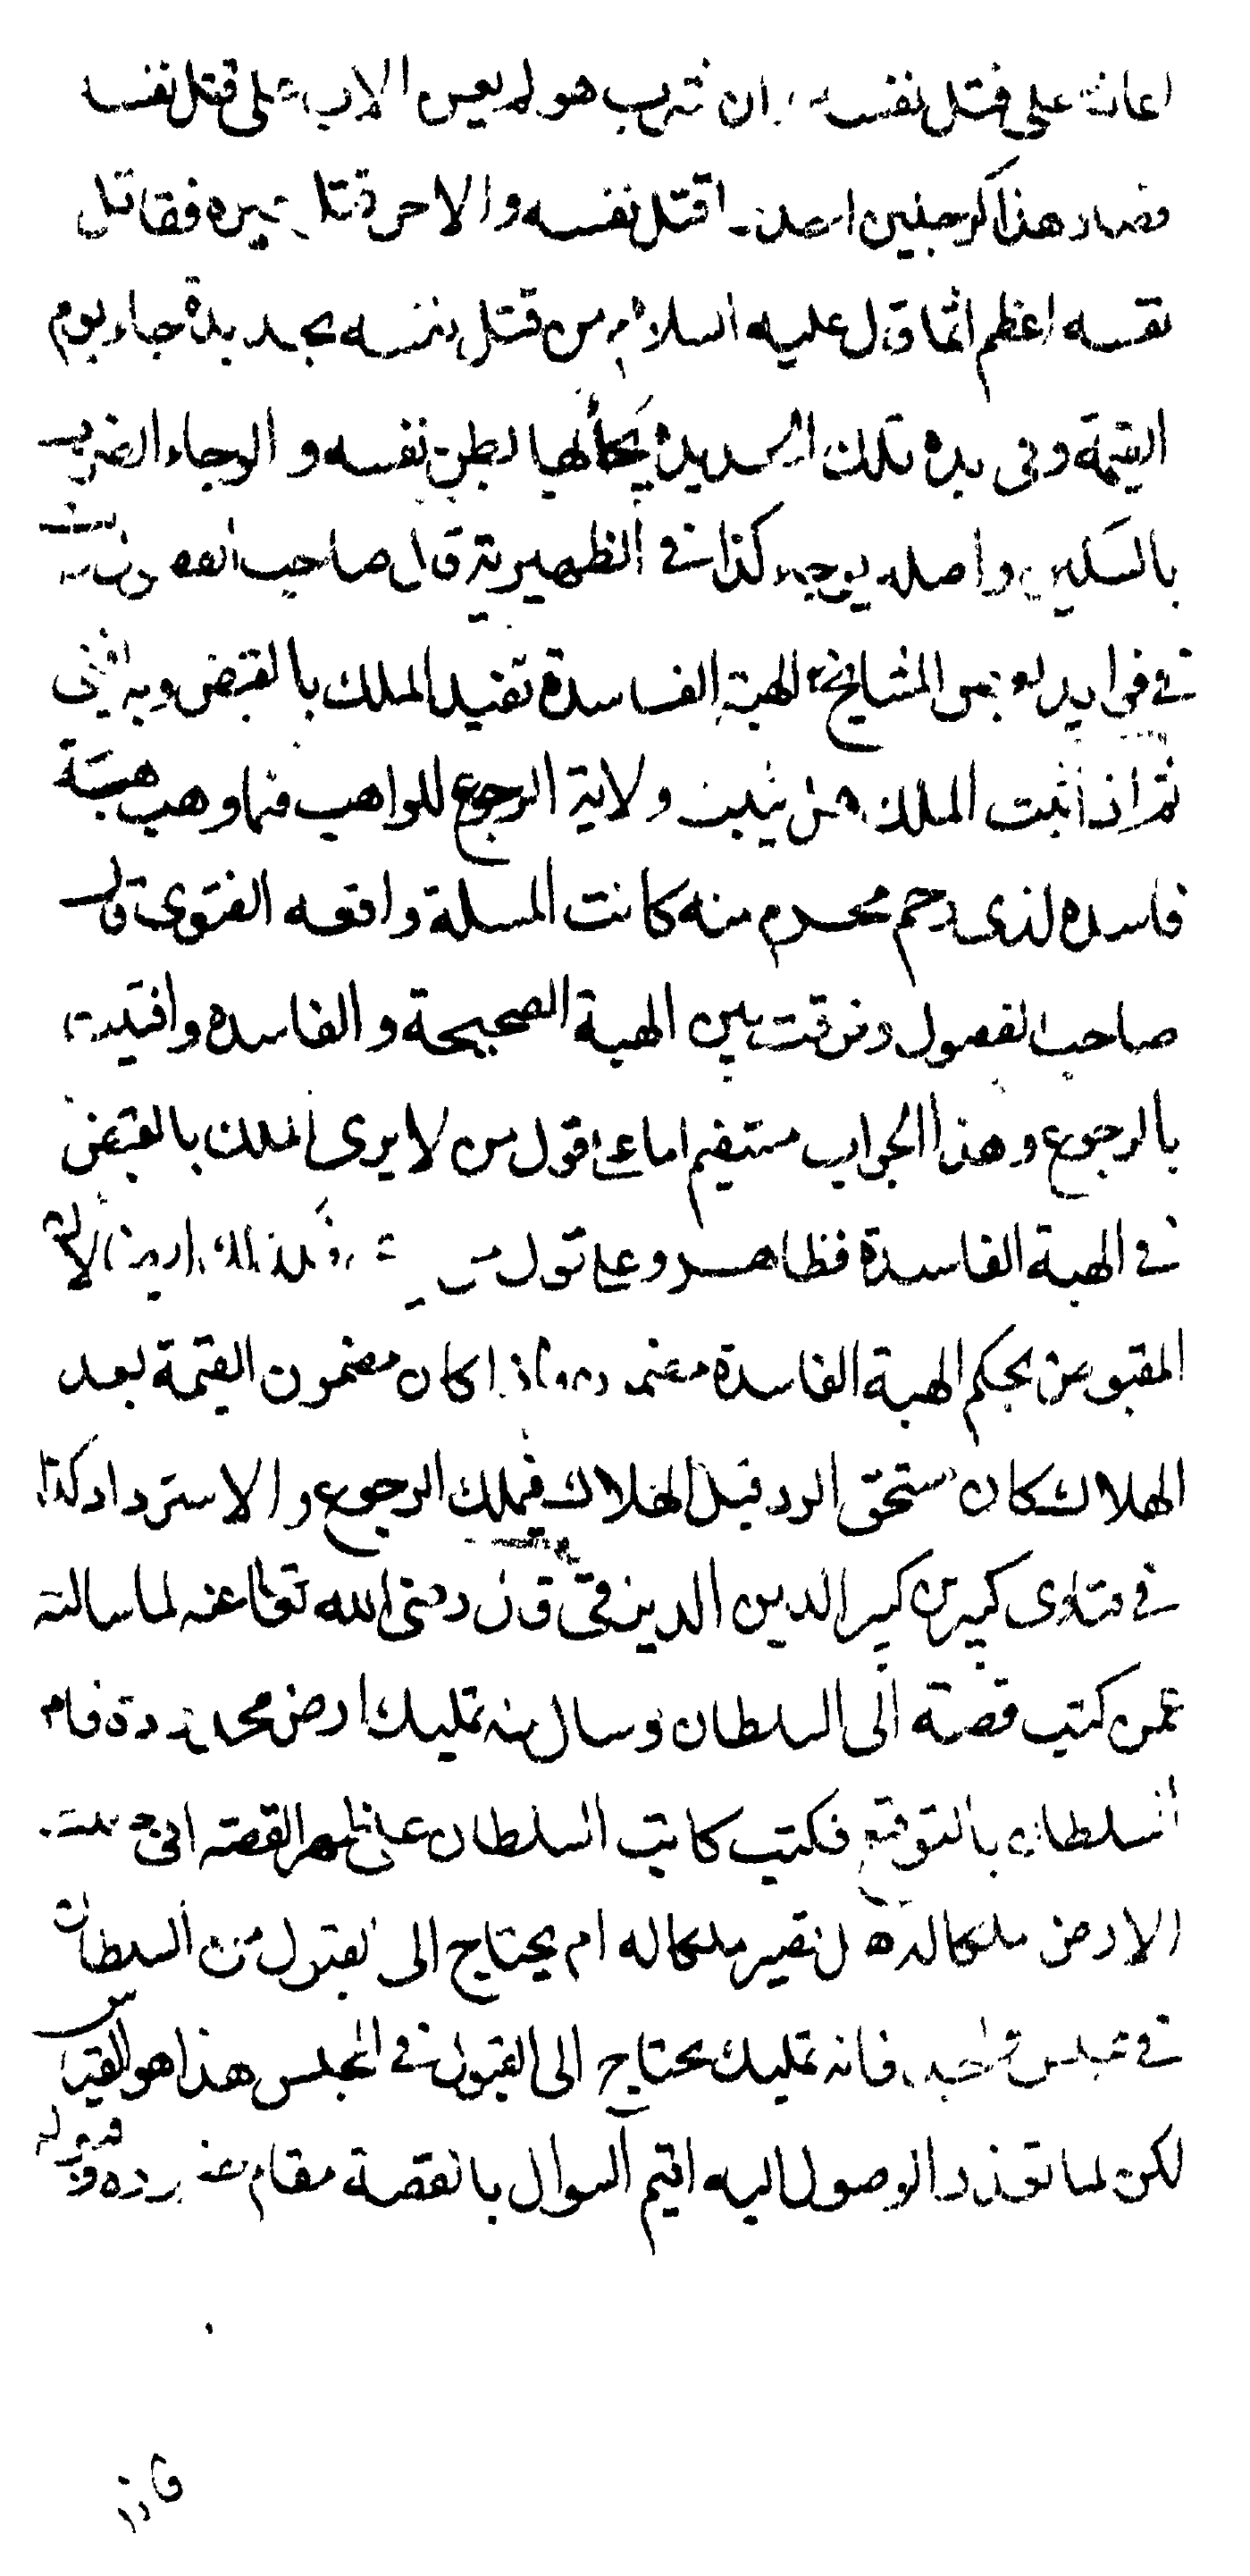 اعانت على قتل نفسه ان شرب هو لم يعن الاب على قتل نفسه
فصار هذا كرجلين احدهما قتل نفسه والاخر قتل غيره فقاتل
نفسه اعظم اثما قال عليه السلام من قتل نفسه بحديدة جاء يوم
القيمة وفى يده تلك الحديدة يجأ بها بطن نفسه و الوجاء الضرب
بالسكين واصله يوجاء كذا فى الظهيرية قال صاحب الفصول
فى فوايد بعض المشايخ الهبة الفاسدة تفيد الملك بالقبض وبه يفتى
ثم اذا ثبت الملك هل يثبت ولاية الرجوع للواهب فيما وهب هبة
فاسده لذى رحم محرم منه كانت المسلة واقعه الفتوى قال
صاحب الفصول وفرقت بين الهبة الصحيحة والفاسده وافتيت
بالرجوع وهذا الجواب مستقيم اما على قول من لا يرى الملك بالقبض
فى الهبة الفاسدة فظاهر وعلى قول من فلان
المقبوض بحكم الهبة الفاسدة مضمون واذا كان مضمون القيمة بعد
الهلاك كان مستحق الرد قبل الهلاك فيملك الرجوع والاسترداد كذا
فى فتاوى كبير الدين قال رضى الله تعالى عنه لما سالته
عمن كتب قصة الى السلطان وسال منه تمليك ارض محدودة فامر
السلطان بالتوقيع فكتب كاتب السلطان على ظهر القصة انى جعلت
الارض ملكا له هل تصير ملكا له ام يحتاج الى القبول من السلطان
فى مجلس واحد فانه تمليك يحتاج الى القبول فى المجلس هذا هو القياس
لكن لما تعذر الوصول اليه اقيم السوال بالقصة مقام حضوره وقبوله
فاذا